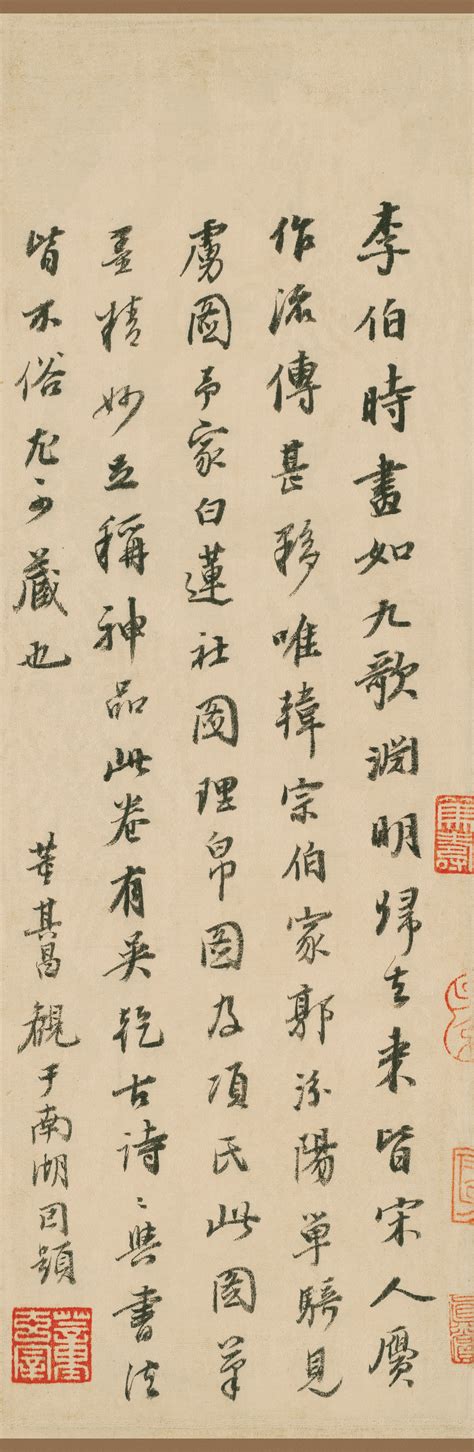 李伯時畫如九歌淵明歸去来皆宋人贗
作流傳甚移唯韓宗伯家郭汾陽單騎見
虜圖予家白蓮社圖理帛圖及項氏此圖筆
墨精妙立稱神品此卷有吳說古詩〻與書法
皆不俗尤可藏也
董其昌觀于南湖因題